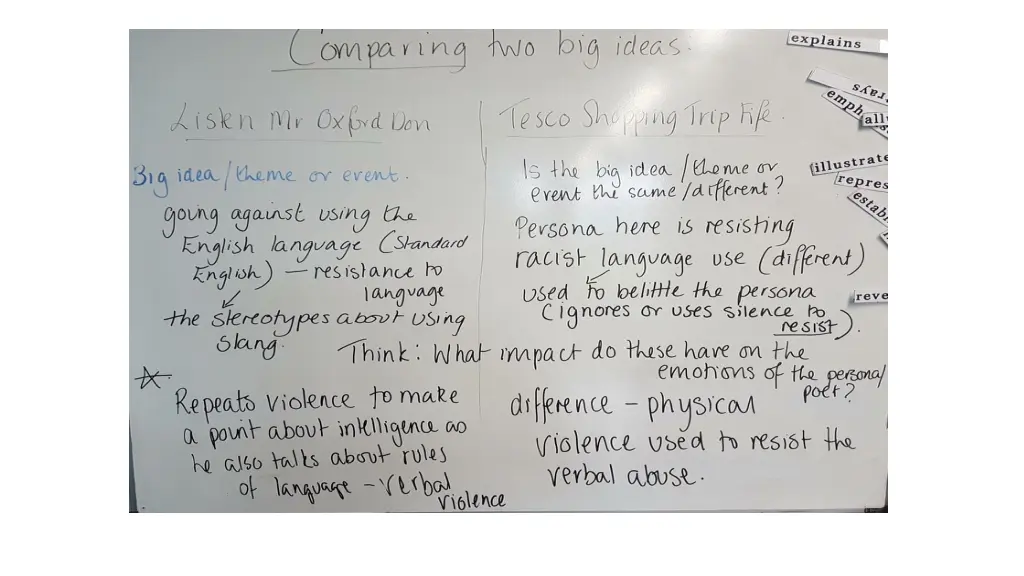 Comparing two big ideas.
Listen Mr Oxford Don
Big idea/theme or event.
going against using the
English language (Standard
English) — resistance to
language
the stereotypes about using
slang.
Tesco Shopping Trip Fife.
Is the big idea/theme or
event the same/different?
Persona here is resisting
racist language use (different)
used to belittle the persona
(ignores or uses silence to
resist).
Think: What impact do these have on the
emotions of the persona/
poet?
Repeats violence to make
a point about intelligence as
he also talks about rules
of language - verbal
violence
difference - physical
violence used to resist the
verbal abuse.
explains
rays
emph
all
illustrate
repres
estab
reve